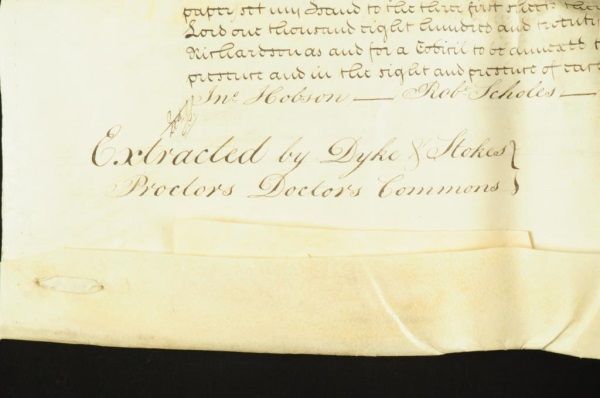 paper set my Hand to the three first sheets
Lord one thousand eight hundred and twenty
Richardson as and for a Codicil to be annexed t
presence and in the sight and presence of eac
Jno. Hobson — Robt. Scholes —
Extracted by Dyke & Stokes
Proctors Doctors Commons